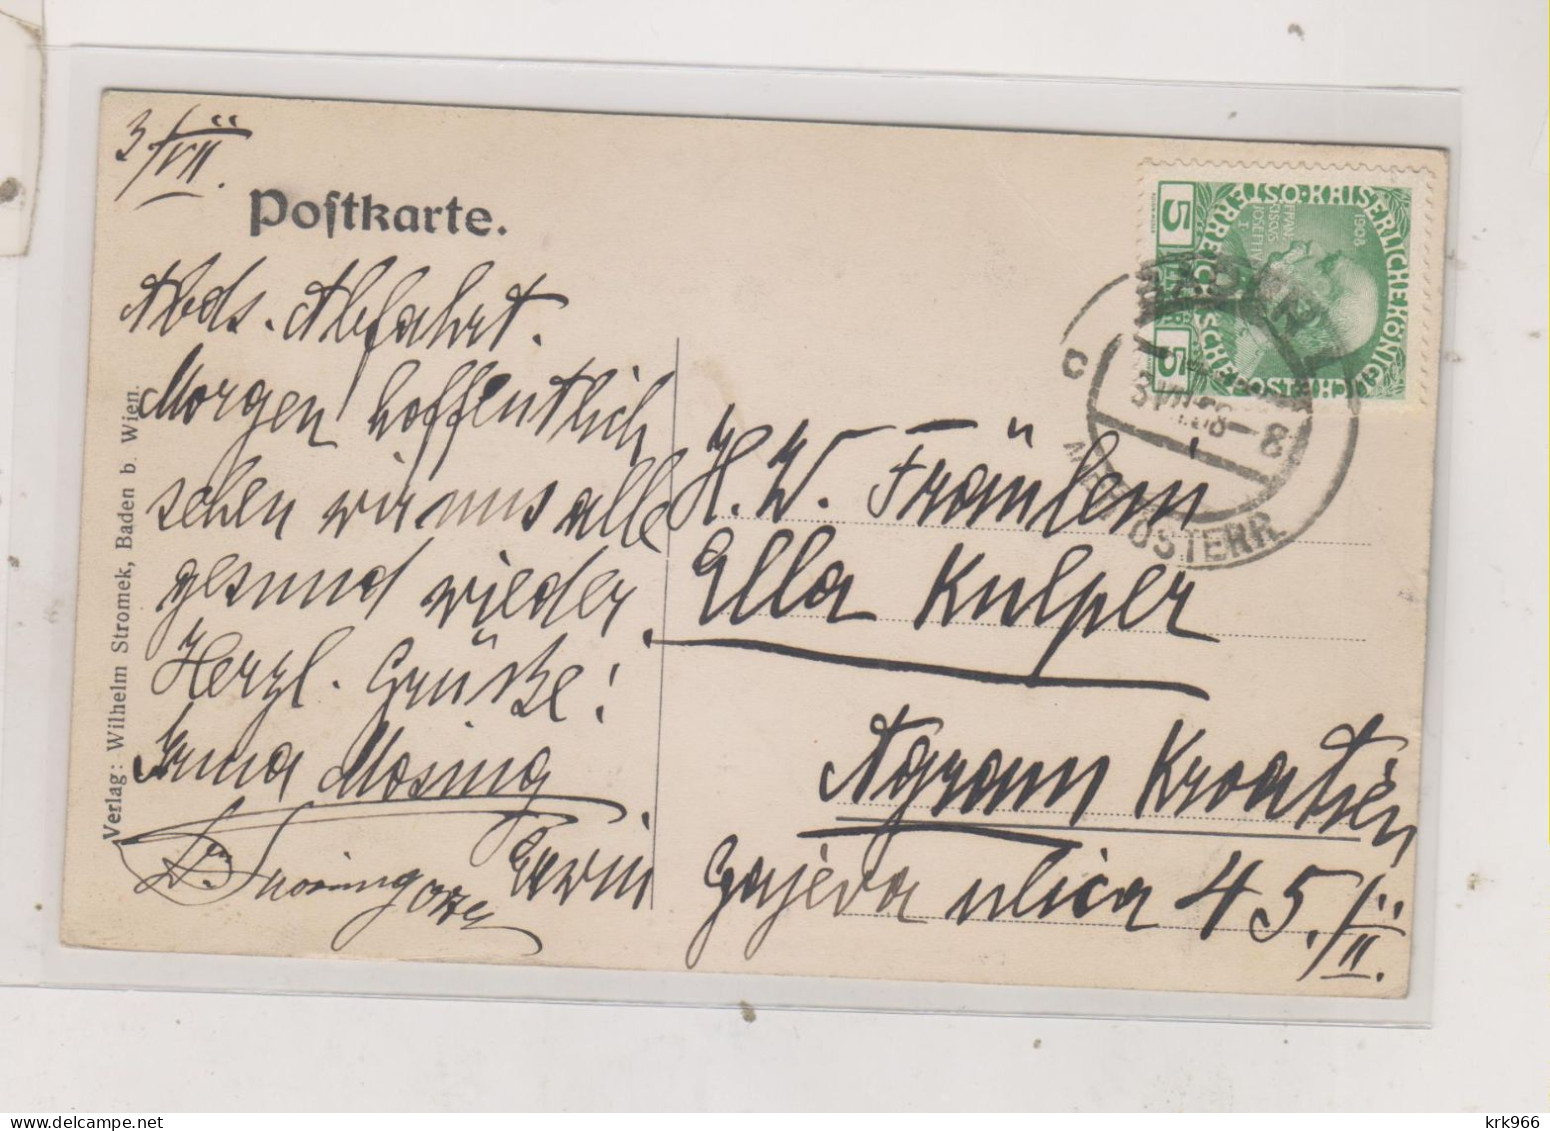 3/VII.
Postkarte.
Abds. Abfahrt.
Morgen hoffentlich
sehen wir uns alle
gesund wieder
Herzl. Grüße!
Irma Mosing
Erwin
Verlag: Wilhelm Stromek, Baden b. Wien.
H. W. Fräulein
Ella Kulper
Agram Kroatien
Gajeva ulica 45./II.
KAISERLICHE KÖNIGLICHE ÖSTERREICHISCHE POST
1908
5 5
BADEN 1
3 VII 08-8
c
NIED. ÖSTERR.
krk966